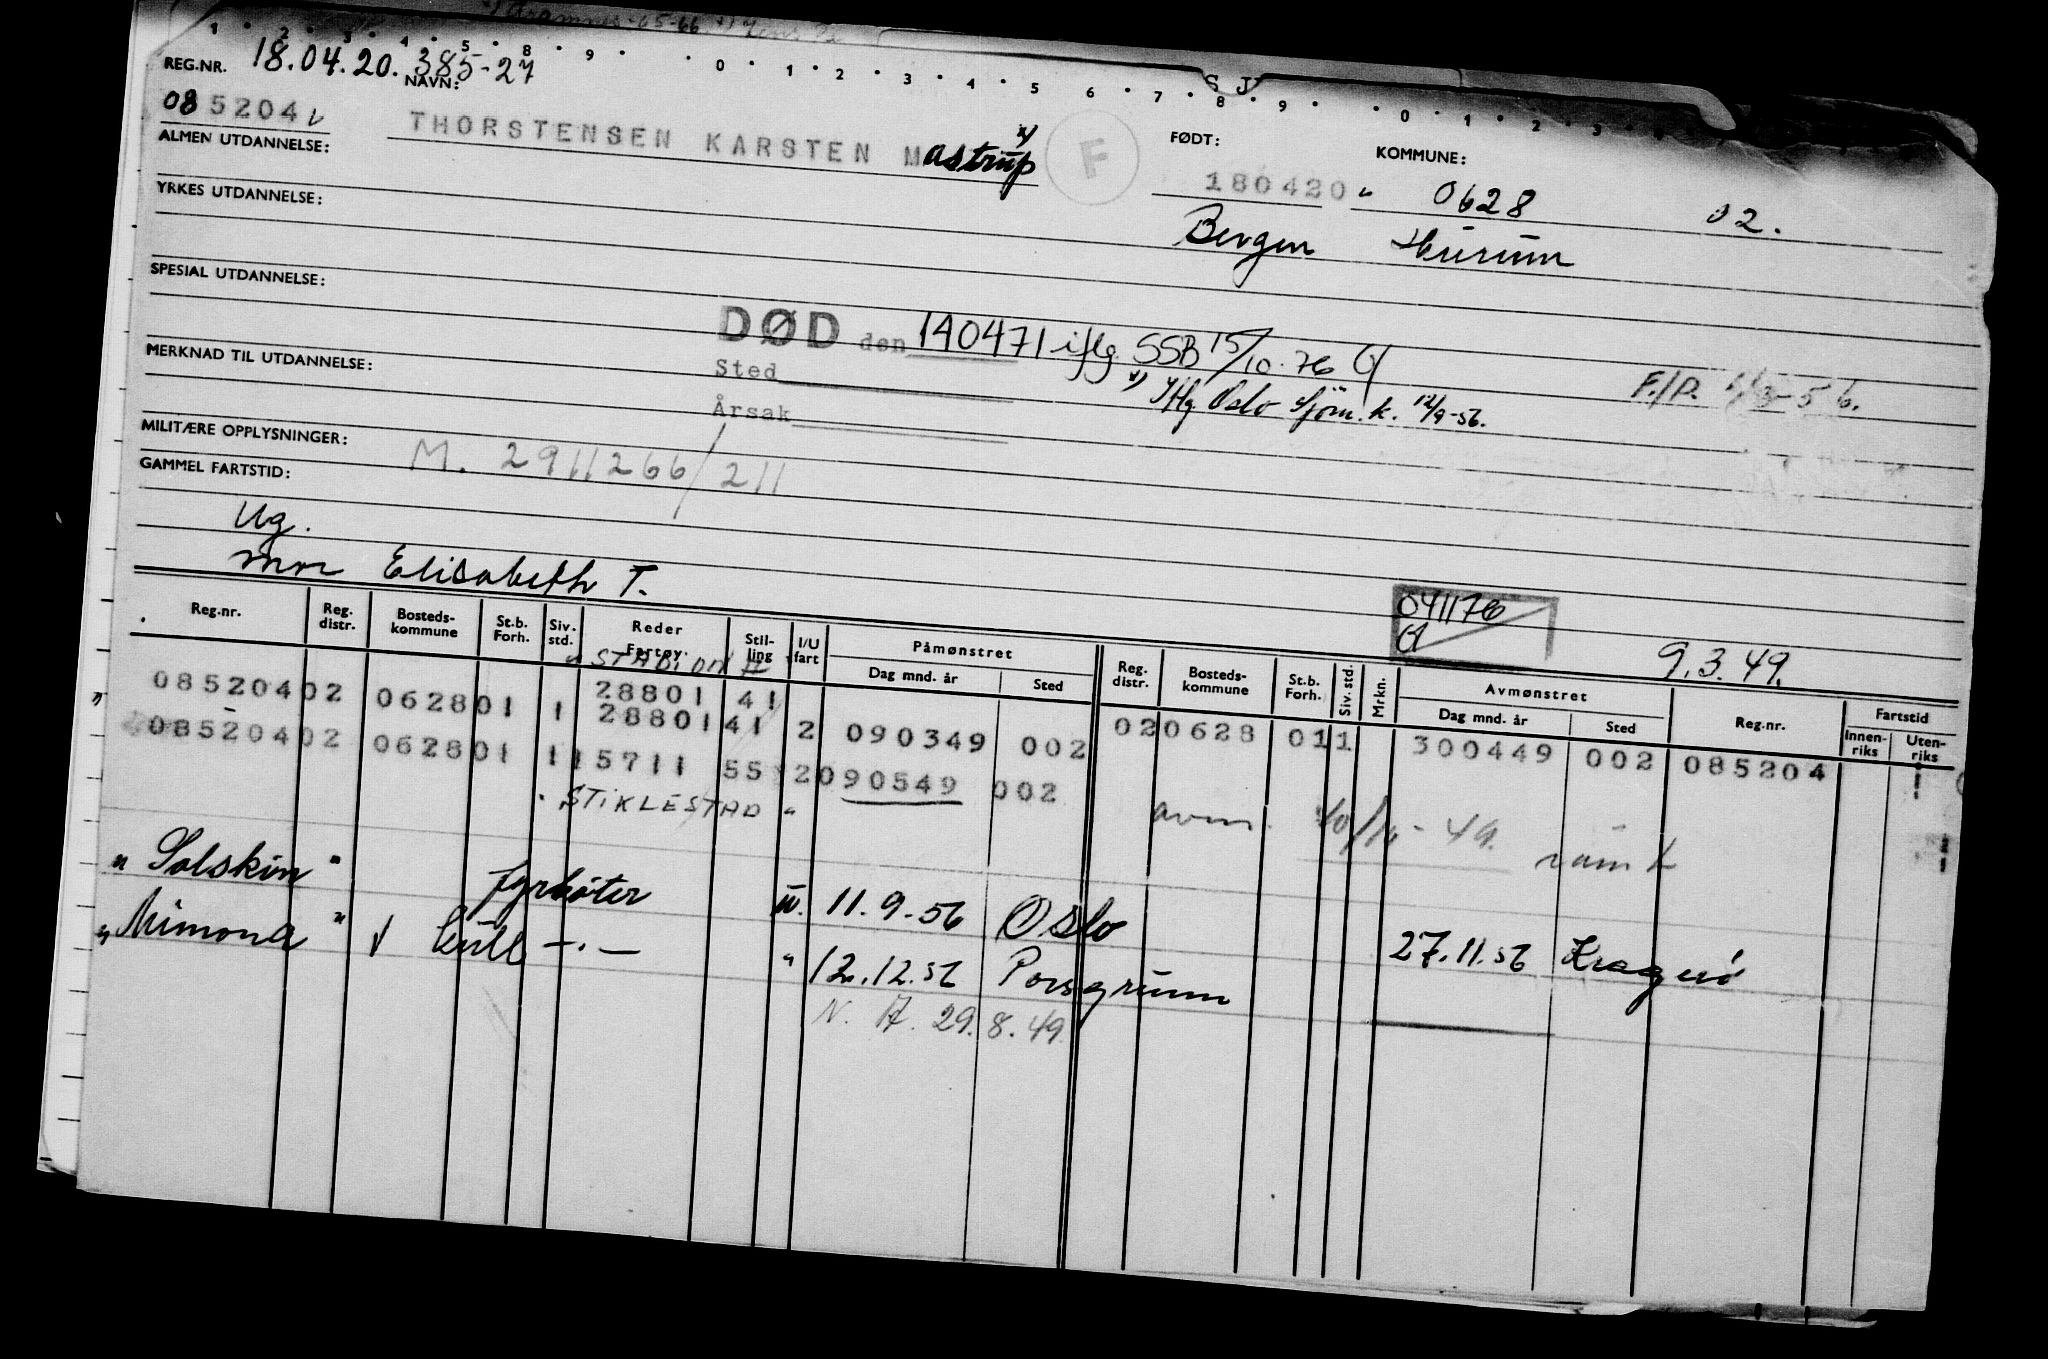 1 · 2 · 3 · 4 · 5 · 8 · 9 · 0 · 1 · 2 · 3 · 4 · 5 6 · 7 · 8 · 9 · 0 · 1 · 2 · 3
S J
REG.NR. 18.04.20. 385-27
NAVN:
085204 THORSTENSEN KARSTEN Mastrup x) F
FØDT: KOMMUNE:
180420 0628 02.
ALMEN UTDANNELSE:
Bergen Hurum
YRKES UTDANNELSE:
SPESIAL UTDANNELSE:
DØD den 140471 iflg. SSB 15/10.76
Sted
x) Iflg. Oslo Sjøm.k. 12/9-56.
MERKNAD TIL UTDANNELSE:
Årsak
MILITÆRE OPPLYSNINGER: M. 2911266/211
GAMMEL FARTSTID:
Ug.
mor Elisabeth T.
041176
9.3.49.
Reg.nr. Reg. distr. Bosteds-kommune St.b. Forh. Siv. std. Reder Fartøy. Stil-ling I/U fart Påmønstret Dag mnd. år Sted Reg. distr. Bosteds-kommune St.b. Forh. Siv. std. Mrkn. Avmønstret Dag mnd. år Sted Reg.nr. Fartstid Innen-riks Uten-riks
28801 41
085204 02 0628 01 1 28801 41 2 090349 002 02 0628 01 1 300449 002 085204
085204 02 0628 01 1 15711 55 2 090549 002
" STIKLESTAD "
avm. - 49.
"Solskin" fyrbøter u. 11.9-56 Oslo 27.11.56 Kragerø
"Mimona" kull -·- " 12.12.56 Porsgrunn
N. A. 29.8.49